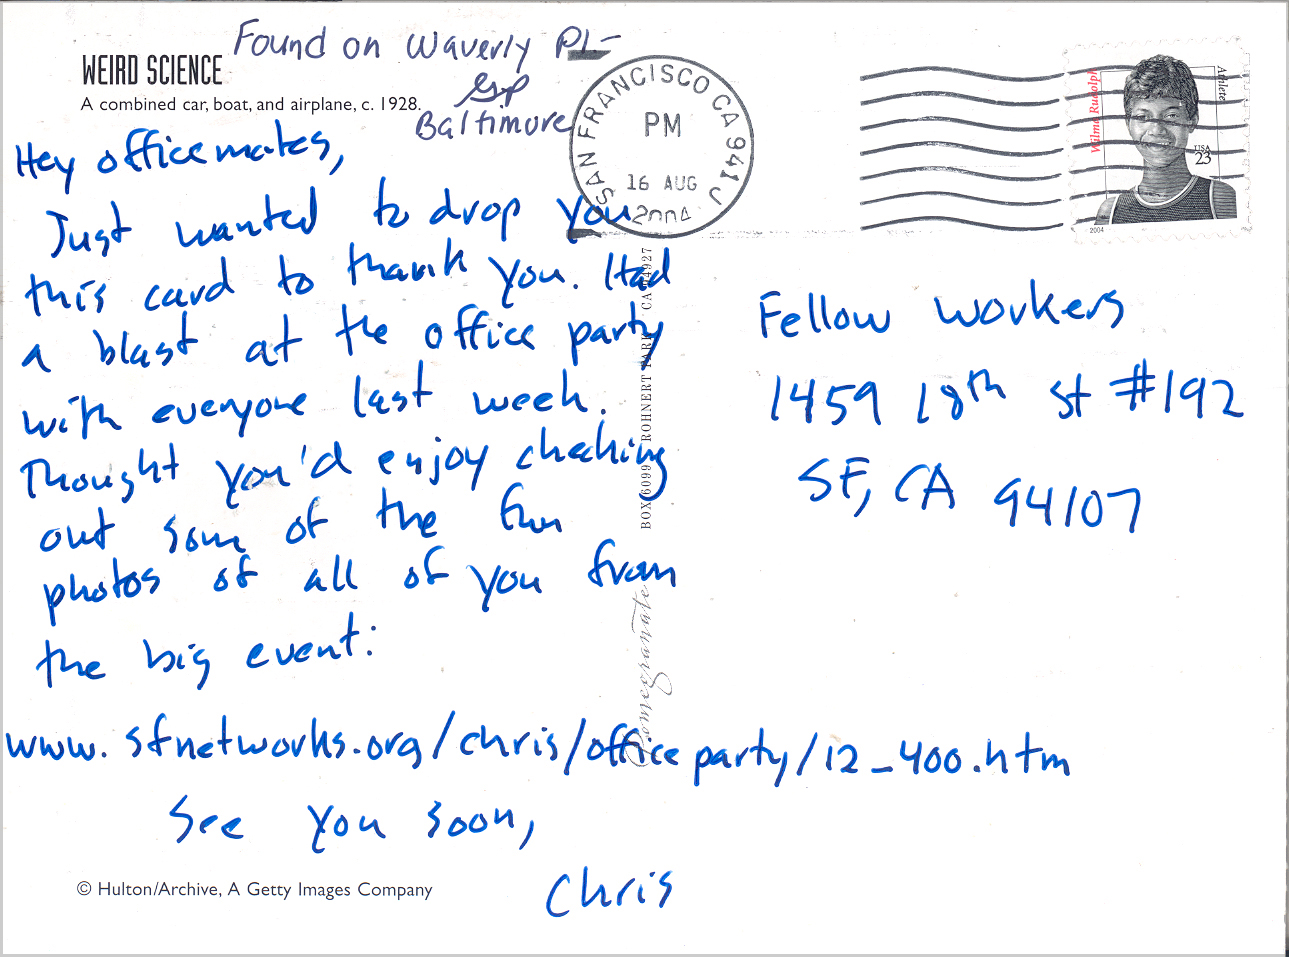 Found on Waverly PL-
Baltimore
WEIRD SCIENCE
A combined car, boat, and airplane, c. 1928.
SAN FRANCISCO CA 941
PM
16 AUG
2004
Wilma Rudolph
Athlete
USA
23
2004
Hey officemates,
Just wanted to drop you
this card to thank you. Had
a blast at the office party
with everyone last week.
Thought you'd enjoy checking
out som of the fun
photos of all of you from
the big event:
www.sfnetworks.org/chris/officeparty/12_400.htm
See you soon,
Chris
Fellow workers
1459 18th st #192
SF, CA 94107
BOX 6099 ROHNERT PARK CA 94927
Pomegranate
© Hulton/Archive, A Getty Images Company